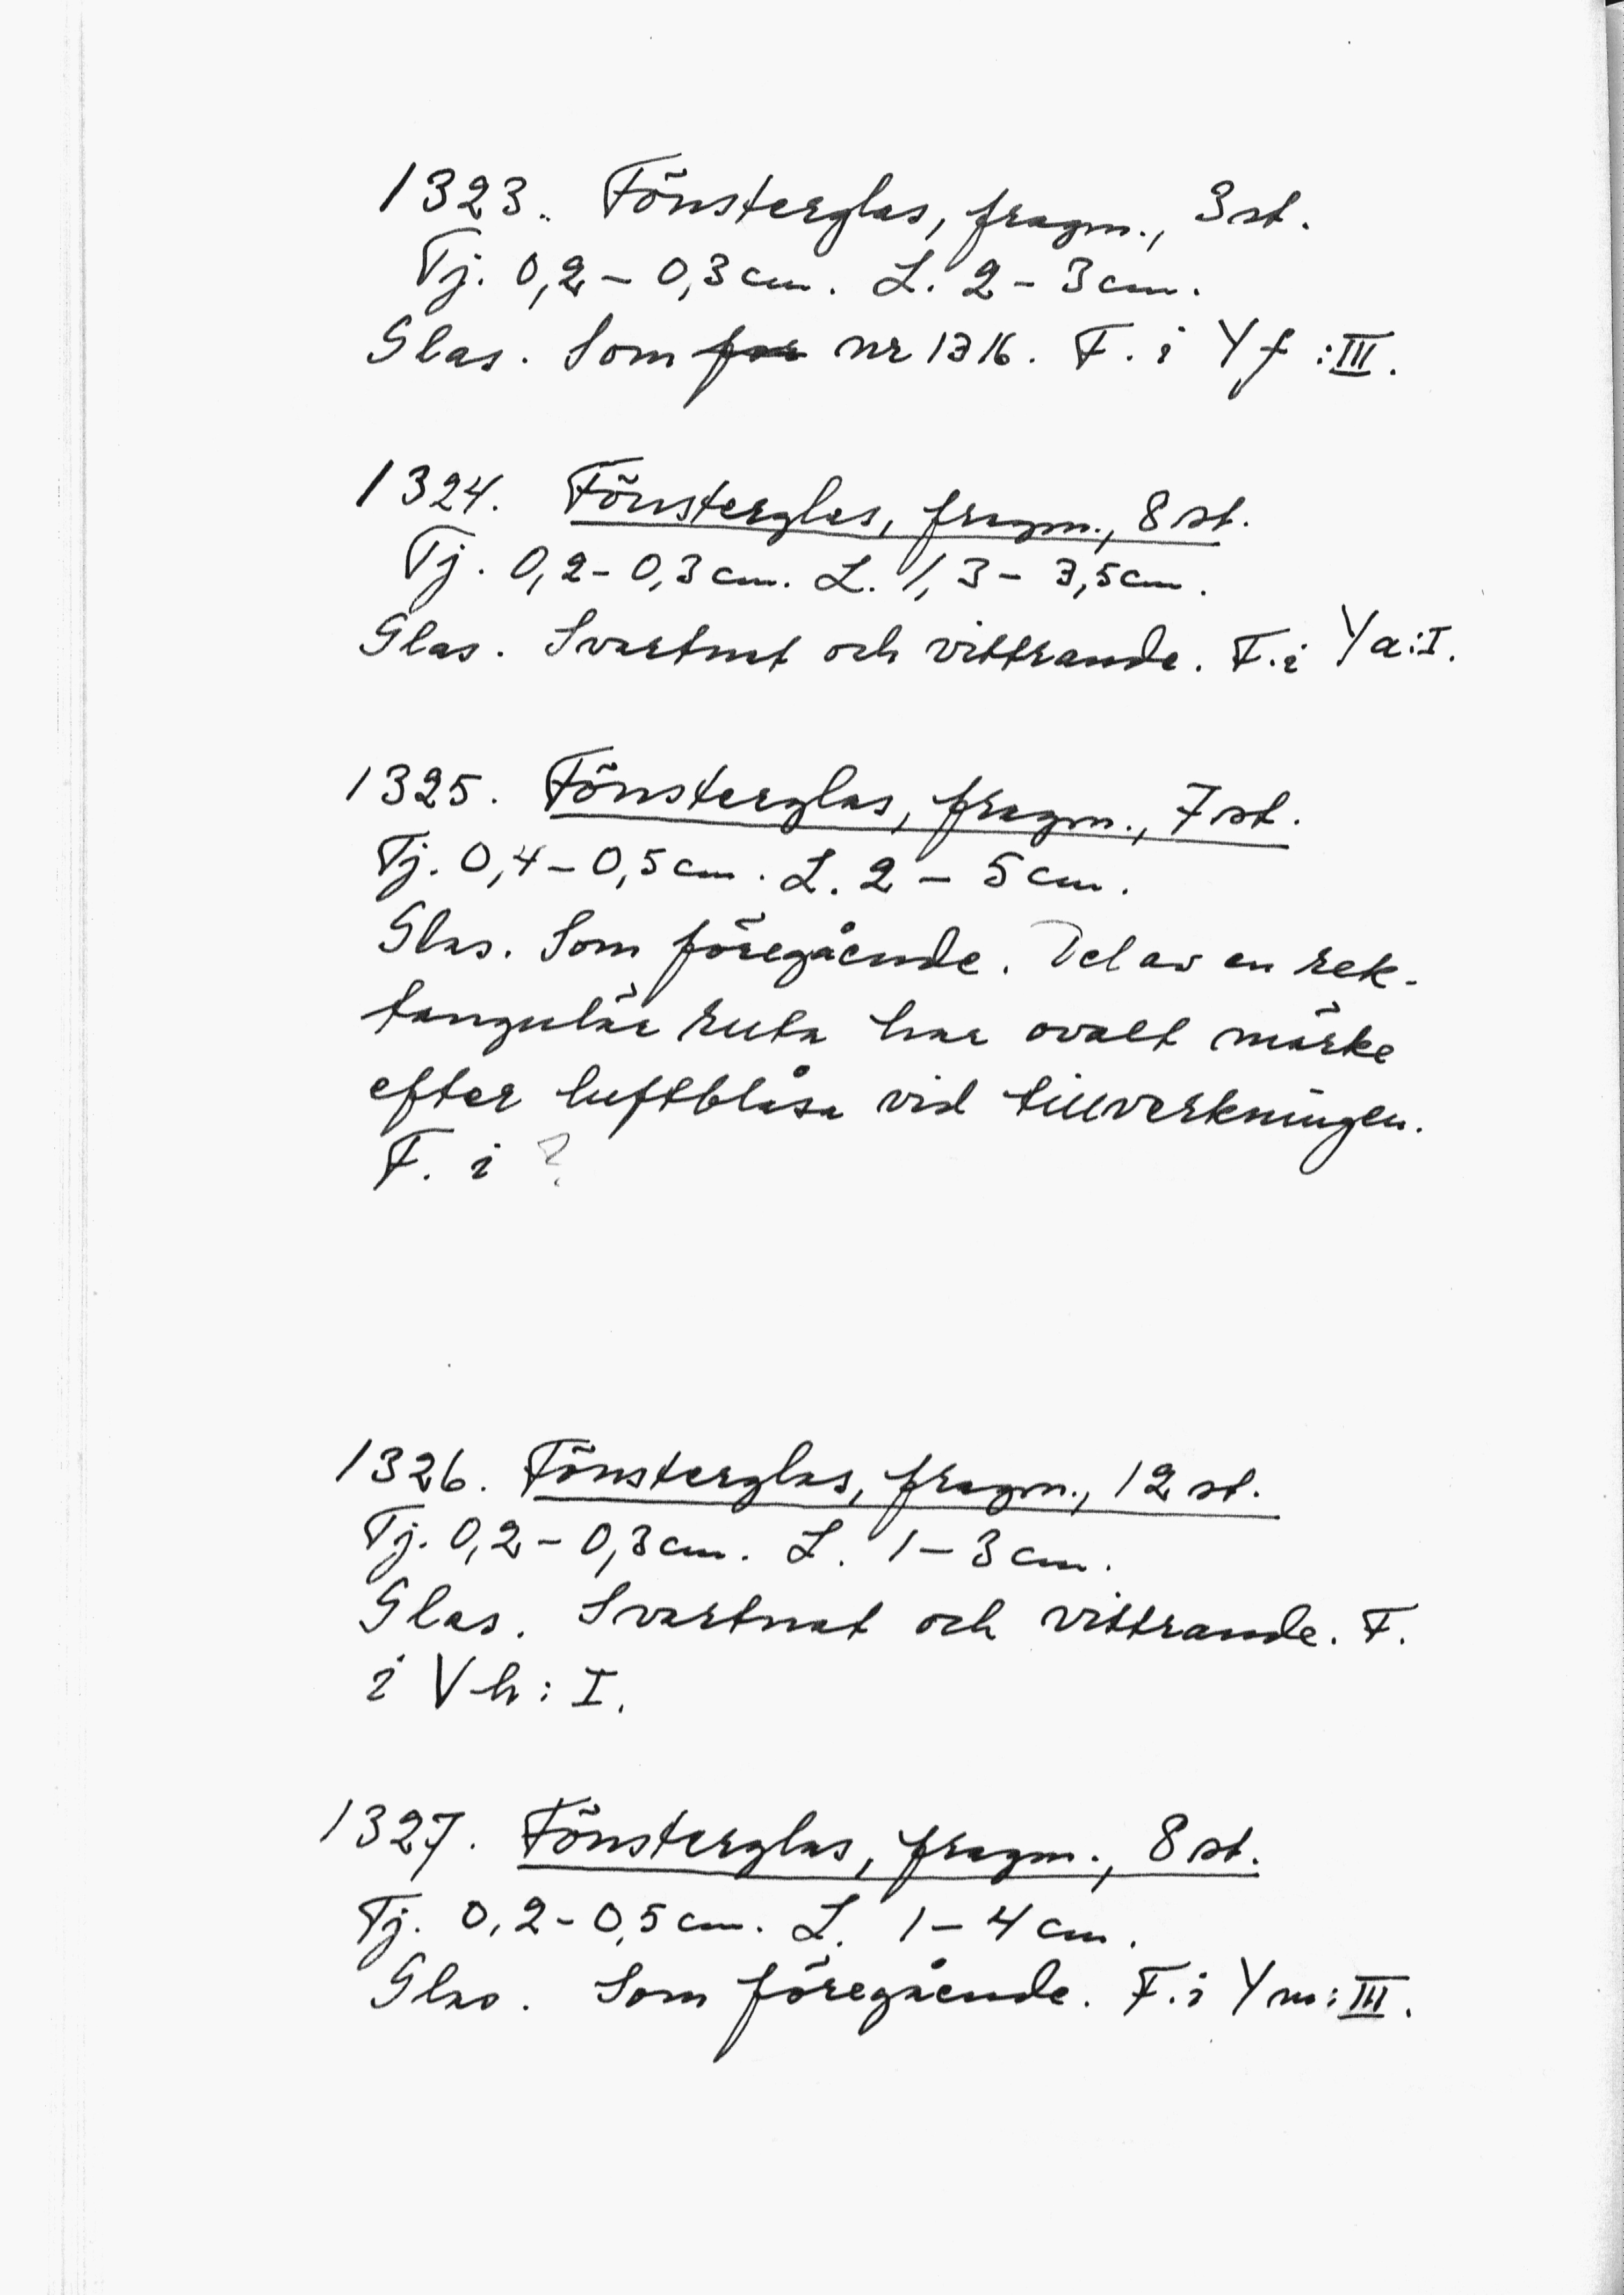 1323. Fönsterglas, fragm., 3 st.
Tj. 0,2 – 0,3 cm. L. 2 – 3 cm.
Glas. Som för nr 1316. F. i Yf :III.
1324. Fönsterglas, fragm., 8 st.
Tj. 0,2 – 0,3 cm. L. 1,3 – 3,5 cm.
Glas. Svartnat och vittrande. F. i Ya:I.
1325. Fönsterglas, fragm., 7 st.
Tj. 0,4 – 0,5 cm. L. 2 – 5 cm.
Glas. Som föregående. Del av en rek-
tangulär ruta har ovalt märke
efter luftblåsa vid tillverkningen.
F. i ?
1326. Fönsterglas, fragm., 12 st.
Tj. 0,2 – 0,3 cm. L. 1 – 3 cm.
Glas. Svartnat och vittrande. F.
i Vh: I.
1327. Fönsterglas, fragm., 8 st.
Tj. 0,2 – 0,5 cm. L. 1 – 4 cm.
Glas. Som föregående. F. i Ym: III.